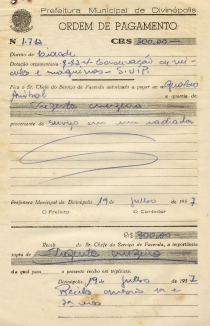 Prefeitura Municipal de Divinópolis
ORDEM DE PAGAMENTO
N 1.712 CR$ 300,00
Distrito de Cidade
Dotação orçamentária 8-82-4 Conservação de veí-
culos e maquinas - S.V.I.P.
Fica o Sr. Chefe do Serviço de Fazenda autorizado a pagar ao
a quantia de
Trezentos cruzeiros
proveniente de serviço em um radiador
Prefeitura Municipal de Divinópolis, 19 de Julho de 1957
O Prefeito O Contador
Cr$ 300,00
Receb do Sr. Chefe do Serviço de Fazenda, a importância
supra de Trezentos cruzeiros
da qual passo o presente recibo em triplicata.
Divinópolis, 19 de Julho de 1957